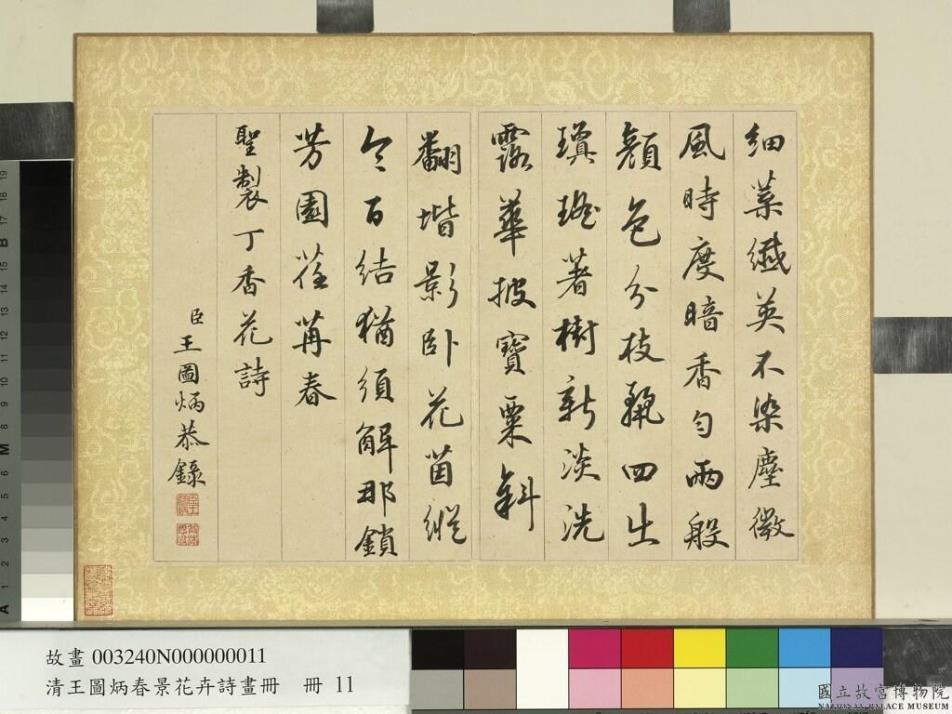 細葉纖英不染塵微
風時度暗香勻兩般
顏色分枝

四出
瓊瑤著樹新淡洗
露華披寶粟斜
翻堦影卧花茵縱
令百結猶須解那鎖
芳園荏苒春
聖製丁香花詩
臣王圖炳恭錄
故畫 003240N000000011
清王圖炳春景花卉詩畫冊 冊 11
國立故宮博物院
NATIONAL PALACE MUSEUM